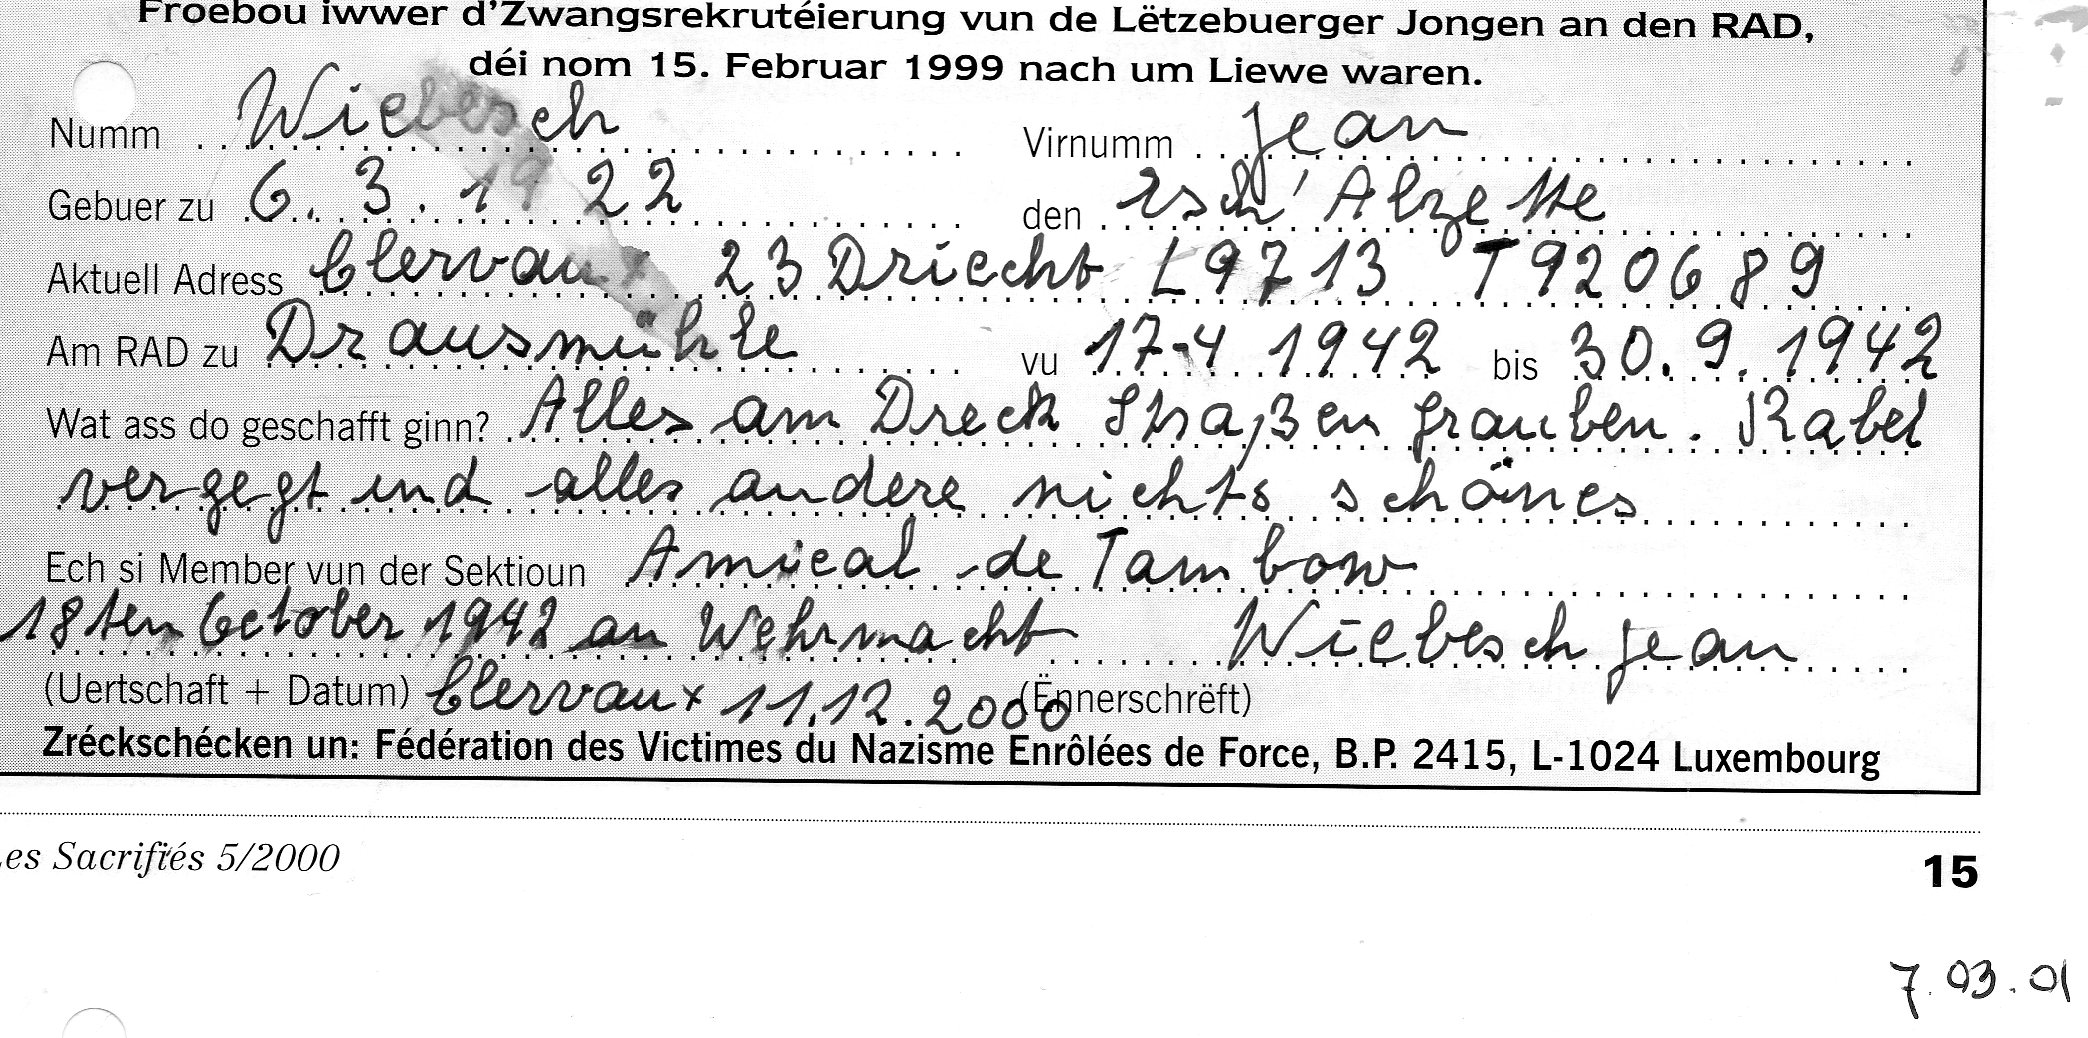 Froebou iwwer d'Zwangsrekrutéierung vun de Lëtzebuerger Jongen an den RAD,
déi nom 15. Februar 1999 nach um Liewe waren.
Numm Wiebesch Virnumm Jean
Gebuer zu 6. 3. 1922 den Esch' Alzette
Aktuell Adress Clervaux 23 Driecht L9713 T920689
Am RAD zu Drausmühle vu 17-4 1942 bis 30.9.1942
Wat ass do geschafft ginn? Alles am Dreck Straßen grauben. Kabel
vergegt und alles andere nichts schönes
Ech si Member vun der Sektioun Amical de Tambow
18ten October 1942 an Wehrmacht Wiebesch Jean
(Uertschaft + Datum) Clervaux 11.12.2000 (Ënnerschrëft)
Zréckschécken un: Fédération des Victimes du Nazisme Enrôlées de Force, B.P. 2415, L-1024 Luxembourg
es Sacrifiés 5/2000 15
7.03.01